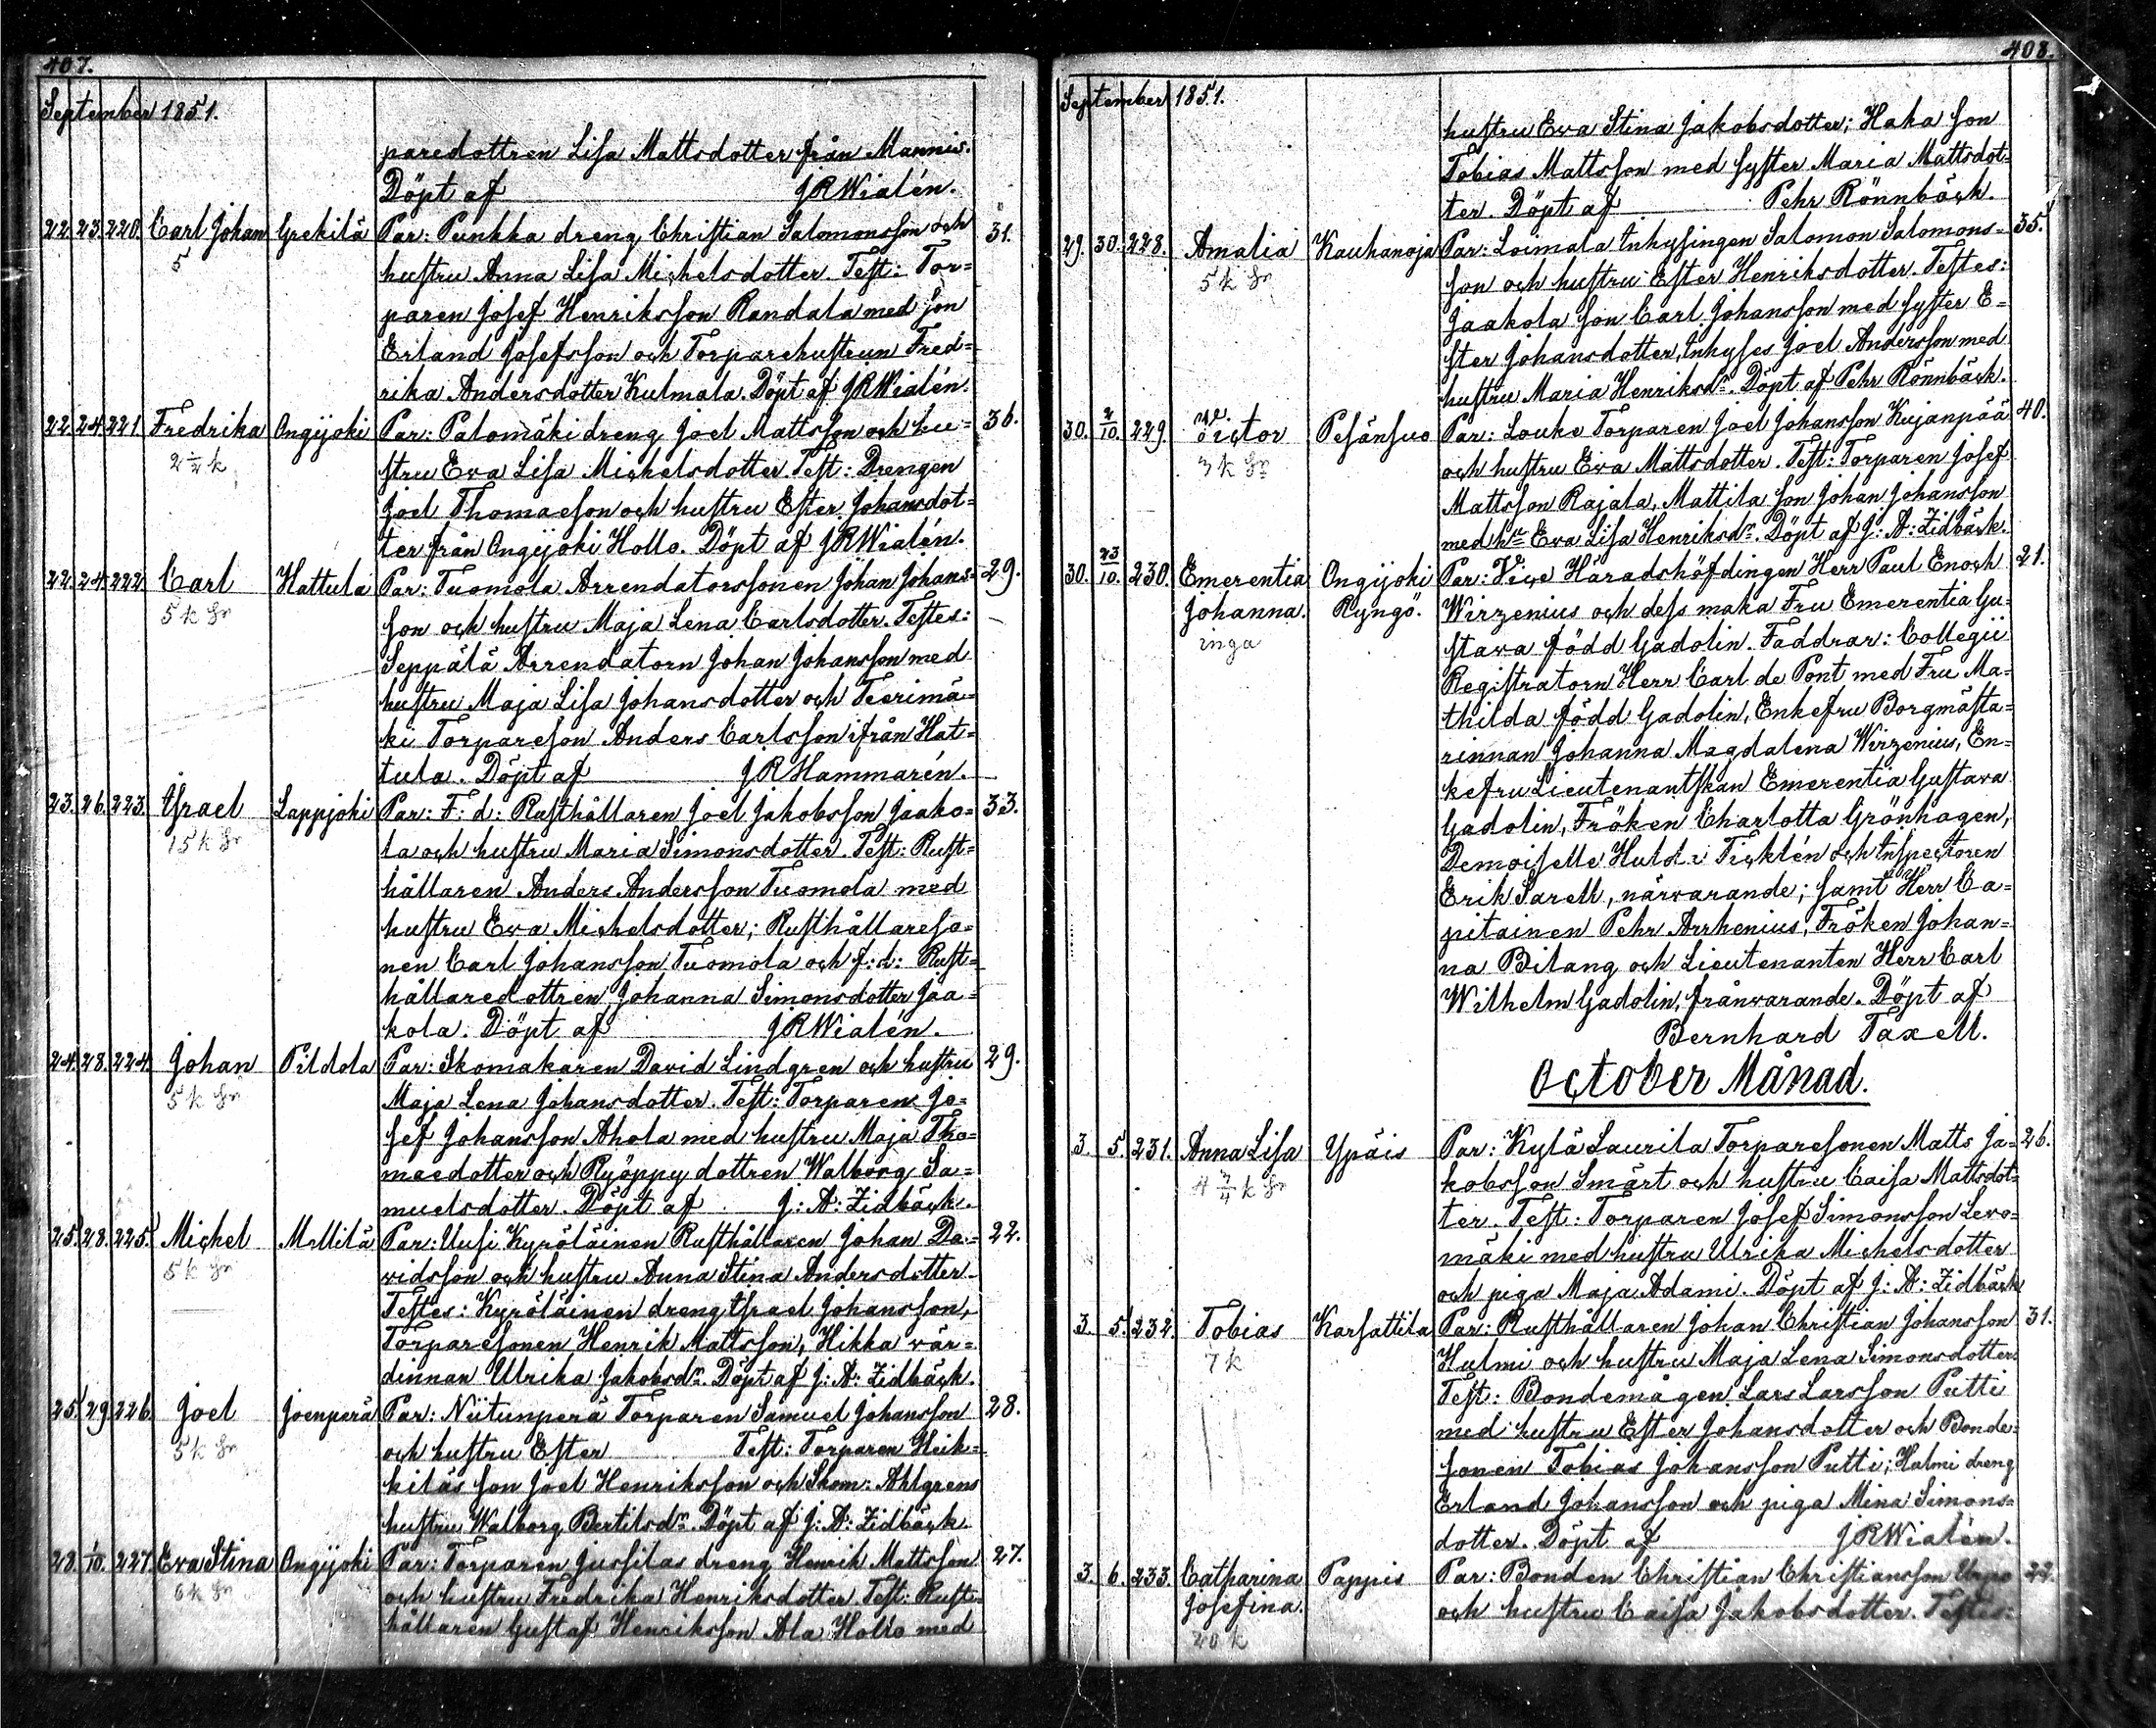 407.
September 1851.
paredottren Lisa Mattsdotter från Mannis.
Döpt af JRWialén.
22. 23. 220. Carl Johan Grekilä Par: Punkka dreng Christian Salomonsson och 31.
5 hustru Anna Lisa Michelsdotter. Test: Tor=
paren Josef Henriksson Randala med son
Erland Josefsson och Torparehustrun Fred=
rika Andersdotter Kulmala. Döpt af JRWialén.
22. 24. 221. Fredrika Ongijoki Par: Palomäki dreng Joel Mattsson och hu= 36.
2 k stru Eva Lisa Michelsdotter. Test: Drengen
Joel Thomasson och hustru Ester Johansdot=
ter från Ongijoki Hollo. Döpt af JRWialén.
22. 24. 222. Carl Hattula Par: Tuomola Arrendatorssonen Johan Johans= 29.
5 k Sr son och hustru Maja Lena Carlsdotter. Testes:
Seppälä Arrendatorn Johan Johansson med
hustru Maja Lisa Johansdotter och Teerimä=
ki Torpareson Anders Carlsson ifrån Hat=
tula. Döpt af JRHammarén.
23. 26. 223. Israel Lappjoki Par: F: d: Rusthållaren Joel Jakobsson Jaako= 33.
15 k Sr la och hustru Maria Simonsdotter. Test: Rust=
hållaren Anders Andersson Tuomola med
hustru Eva Michelsdotter; Rusthållareso=
nen Carl Johansson Tuomola och f: d: Rust=
hållaredottren Johanna Simonsdotter Jaa=
kola. Döpt af JRWialén.
24. 28. 224. Johan Pildola Par: Skomakaren David Lindgren och hustru 29.
5 k Sr Maja Lena Johansdotter. Test: Torparen Jo=
sef Johansson Ahola med hustru Maja Tho=
masdotter och Ryöppy dottren Walborg Sa=
muelsdotter. Döpt af J: A: Zidbäck.
25. 28. 225. Michel Mellilä Par: Uusi Kyröläinen Rusthållaren Johan Da= 22.
5 k Sr vidsson och hustru Anna Stina Andersdotter.
Testes: Kyröläinen dreng Israel Johansson,
Torparesonen Henrik Mattsson, Hikka vär=
dinnan Ulrika Jakobsdr. Döpt af J: A: Zidbäck.
25. 29. 226. Joel Joenperä Par: Niitunperä Torparen Samuel Johansson 28.
5 k Sr och hustru Ester Test: Torparen Heik=
kiläs son Joel Henriksson och Skom: Ahlgrens
hustru Walborg Bertilsdr. Döpt af J: A: Zidbäck
28. 1/10. 227. Eva Stina Ongijoki Par: Torparen Jussilas dreng Henrik Mattsson 27.
6 k Sr och hustru Fredrika Henriksdotter. Test: Rust=
hållaren Gustaf Henriksson Ala Hollo med
408.
September 1851.
hustru Eva Stina Jakobsdotter; Haka son
Tobias Mattsson med syster Maria Mattsdot=
ter. Döpt af Pehr Rönnbäck.
29. 30. 228. Amalia Kauhanoja Par: Loimala Inhysingen Salomon Salomons= 35.
5 k Sr son och hustru Ester Henriksdotter. Testes:
Jaakola son Carl Johansson med syster E=
ster Johansdotter, Inhyses Joel Andersson med
hustru Maria Henriksdr. Döpt af Pehr Rönnbäck.
30. 2/10. 229. Victor Pesänsuo Par: Louke Torparen Joel Johansson Kujanpää 40.
3 k Sr och hustru Eva Mattsdotter. Test: Torparen Josef
Mattsson Rajala, Mattila son Johan Johansson
med hu Eva Lisa Henriksdr. Döpt af J: A: Zidbäck.
30. 23/10. 230. Emerentia Ongijoki Par: Vice Häradshöfdingen Herr Paul Enoch 21.
Johanna. Ryngö. Wirzenius och dess maka Fru Emerentia Gu=
inga stava född Gadolin. Faddrar: Collegii
Registratorn Herr Carl de Pont med Fru Ma=
thilda född Gadolin, Enkefru Borgmästa=
rinnan Johanna Magdalena Wirzenius, En=
kefru Lieutenantskan Emerentia Gustava
Gadolin, Fröken Charlotta Grönhagen,
Demoiselle Hulda Ticklén och Inspectoren
Erik Sarell, närvarande; samt Herr Ca=
pitainen Pehr Arrhenius, Fröken Johan=
na Bilang och Lieutenanten Herr Carl
Wilhelm Gadolin, frånvarande. Döpt af
Bernhard Taxell.
October Månad.
3. 5. 231. Anna Lisa Ypäis Par: Kylä Laurila Torparesonen Matts Ja= 26.
4 k Sr kobsson Smärt och hustru Caisa Mattsdot=
ter. Test: Torparen Josef Simonsson Levo=
mäki med hustru Ulrika Michelsdotter
och piga Maja Adami. Döpt af J: A: Zidbäck
3. 5. 232. Tobias Karsattila Par: Rusthållaren Johan Christian Johansson 31.
7 k Hulmi och hustru Maja Lena Simonsdotter.
Test: Bondemågen Lars Larsson Putti
med hustru Ester Johansdotter och Bonde=
sonen Tobias Johansson Putti; Hulmi dreng
Erland Johansson och piga Mina Simons=
dotter. Döpt af JRWialén.
3. 6. 233. Catharina Pappis Par: Bonden Christian Christiansson Urpo 22.
Josefina. och hustru Caisa Jakobsdotter. Testes:
20 k